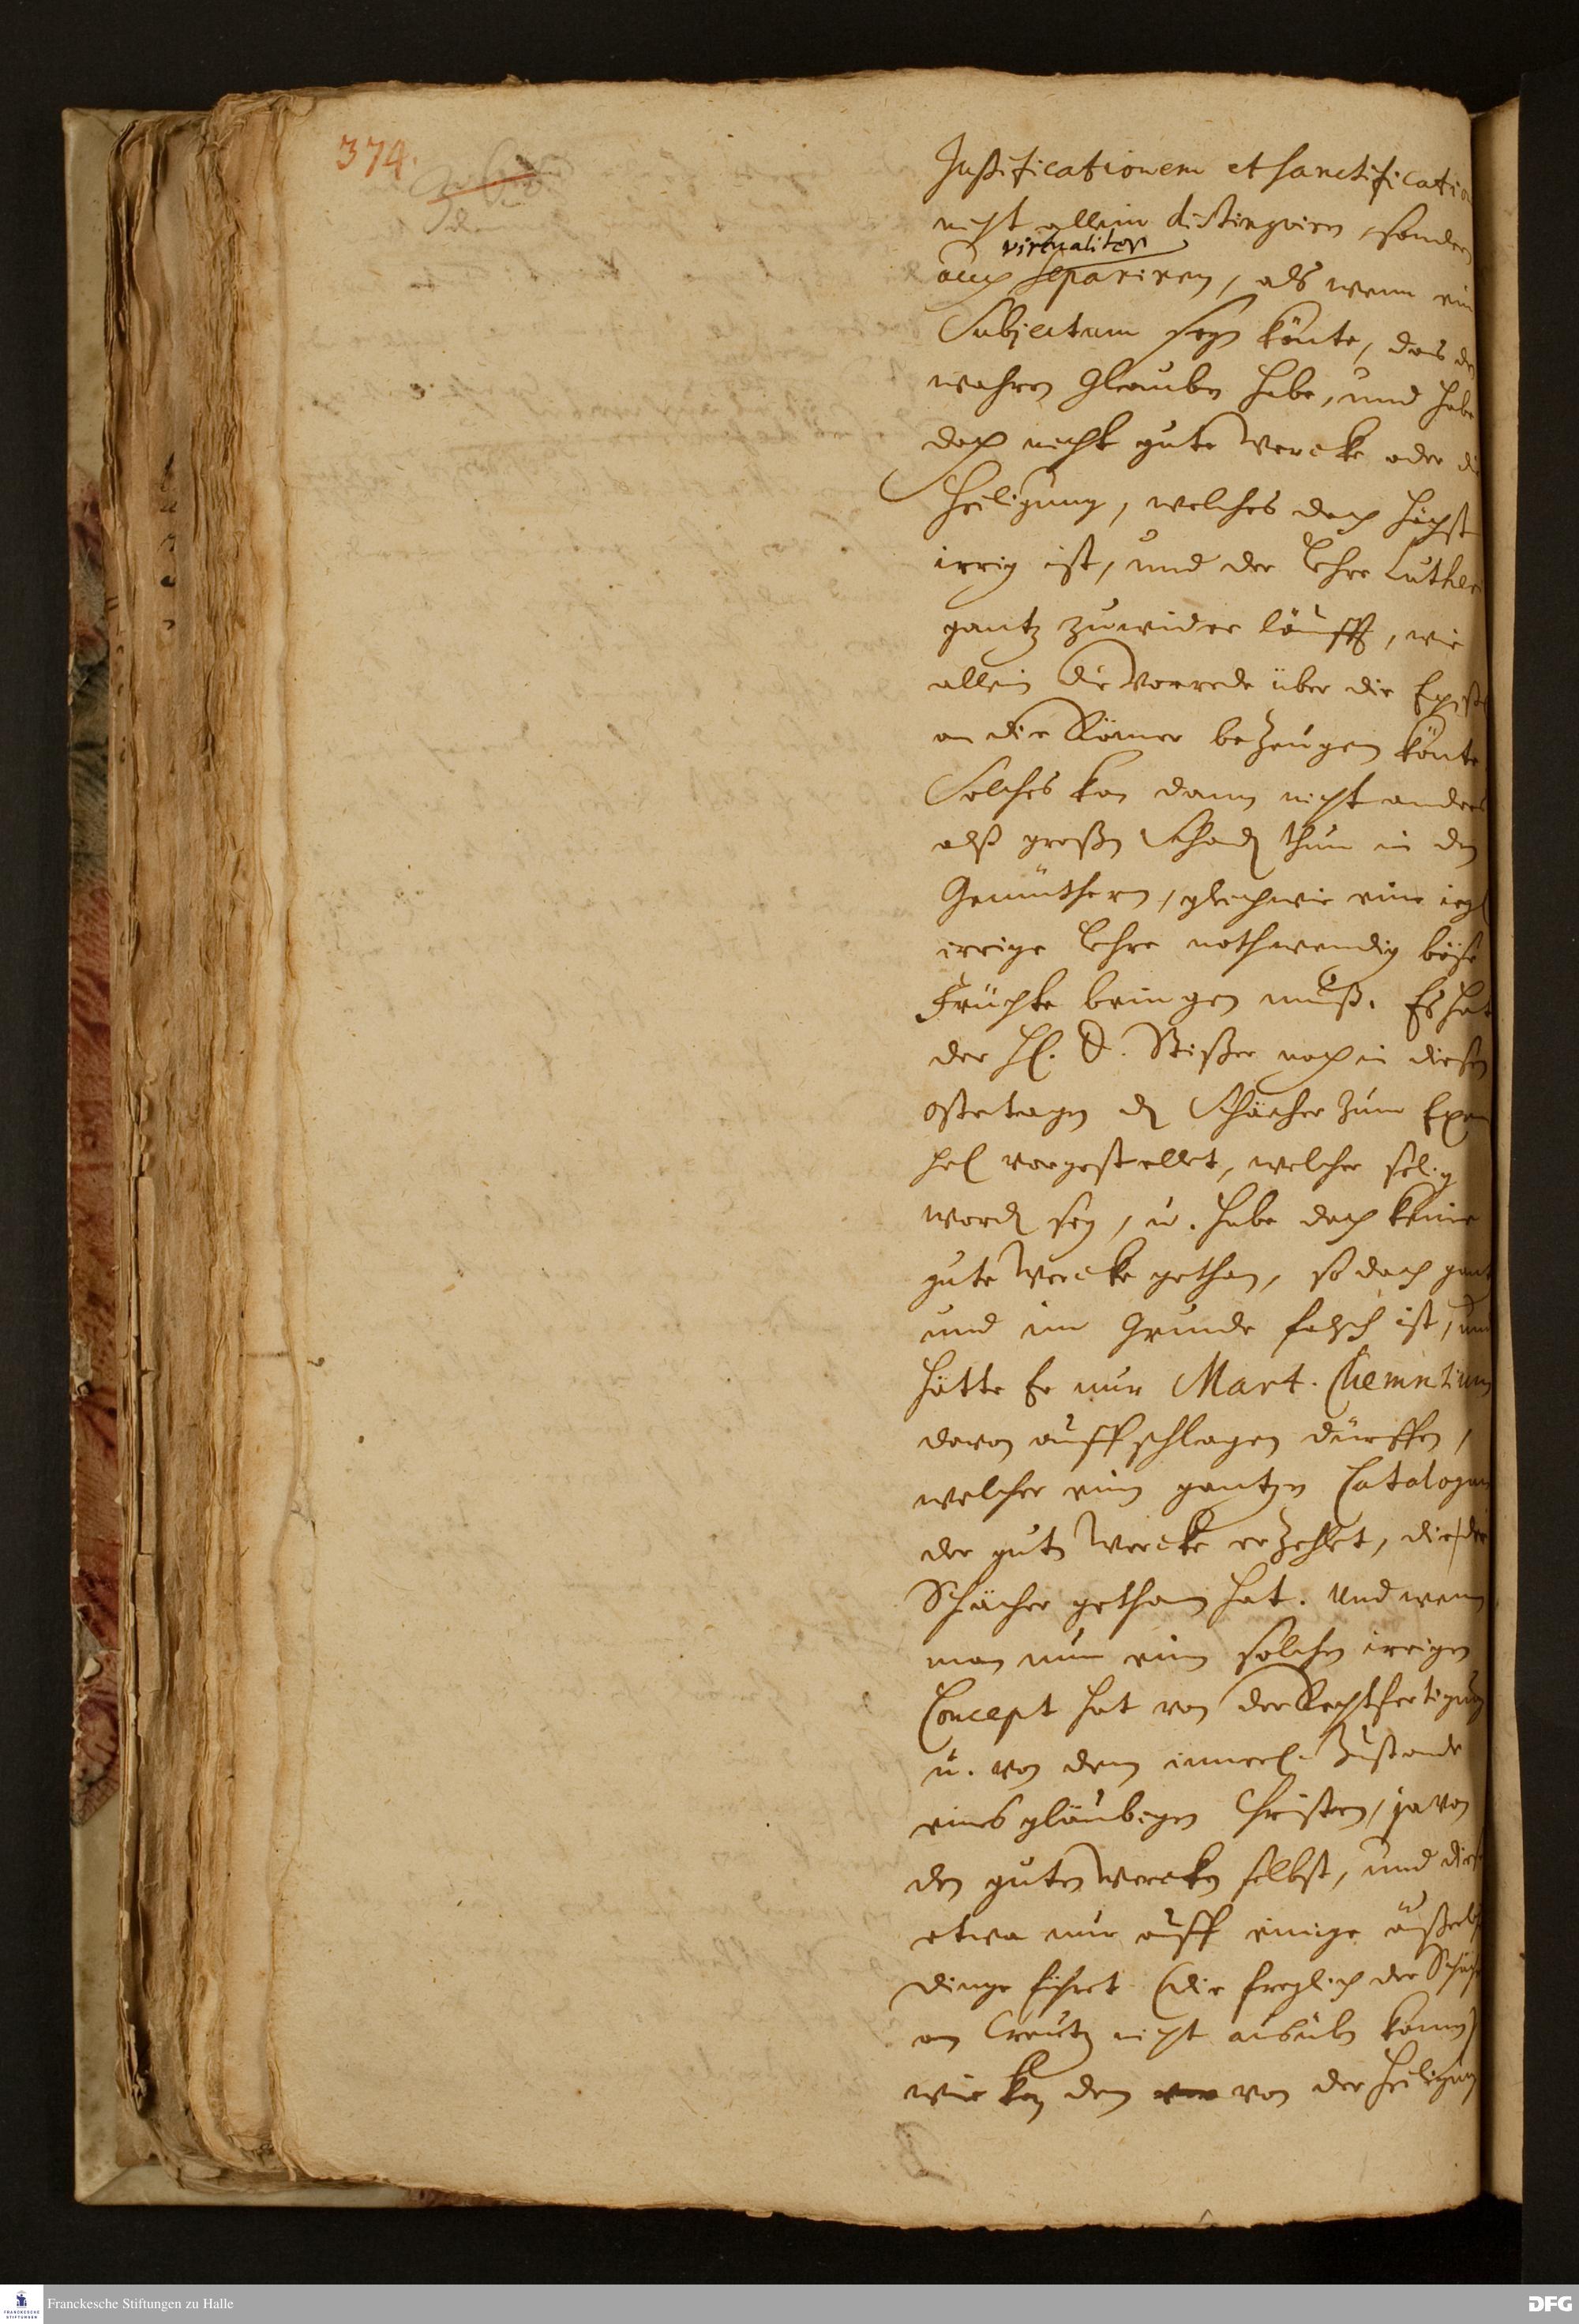 374.
Justificationem et sanctificatio
nicht allein distingviren, sondern
virtualiter
auch separiren, als wenn ein
Subjectum seyn könte, das de
wahren Glauben habe, und habe
doch nicht gute Wercke oder die
Heiligung, welches doch höchst
irrig ist, und der Lehre Luther
gantz zuwider läufft, wie
allein die Vorrede über die Epist
an die Römer bezeugen könte
Solches kan dann nicht anders
alß großen Schaden thun in den
Gemüthern, gleichwie eine iegl
irrige Lehre nothwendig böse
Früchte bringen muß. Es hat
der H. D. Stißer noch in diesen
Ostertagen den Schächer zum Exem
pel vorgestellet, welcher selig
worden sey, u. habe doch keine
gute Wercke gethan, so doch gantz
und im Grunde falsch ist, und
hätte Er nur Mart. Chemnitium
davon auffschlagen dürffen,
welcher einen gantzen Catalogum
der guten Wercke erzehlet, die der
Schächer gethan hat. Und wenn
man nun einen solchen irrigen
Concept hat von der Rechtfertigung
u. von dem innerl. Zustande
eines gläubigen Christen, ja von
den guten Wercken selbst, und diese
etwa nur auff einige äußerl
dinge führet (die freylich der Schäche
am Creutz nicht ausüben können)
wie kan denn von der Heiligung
Franckesche Stiftungen zu Halle
DFG